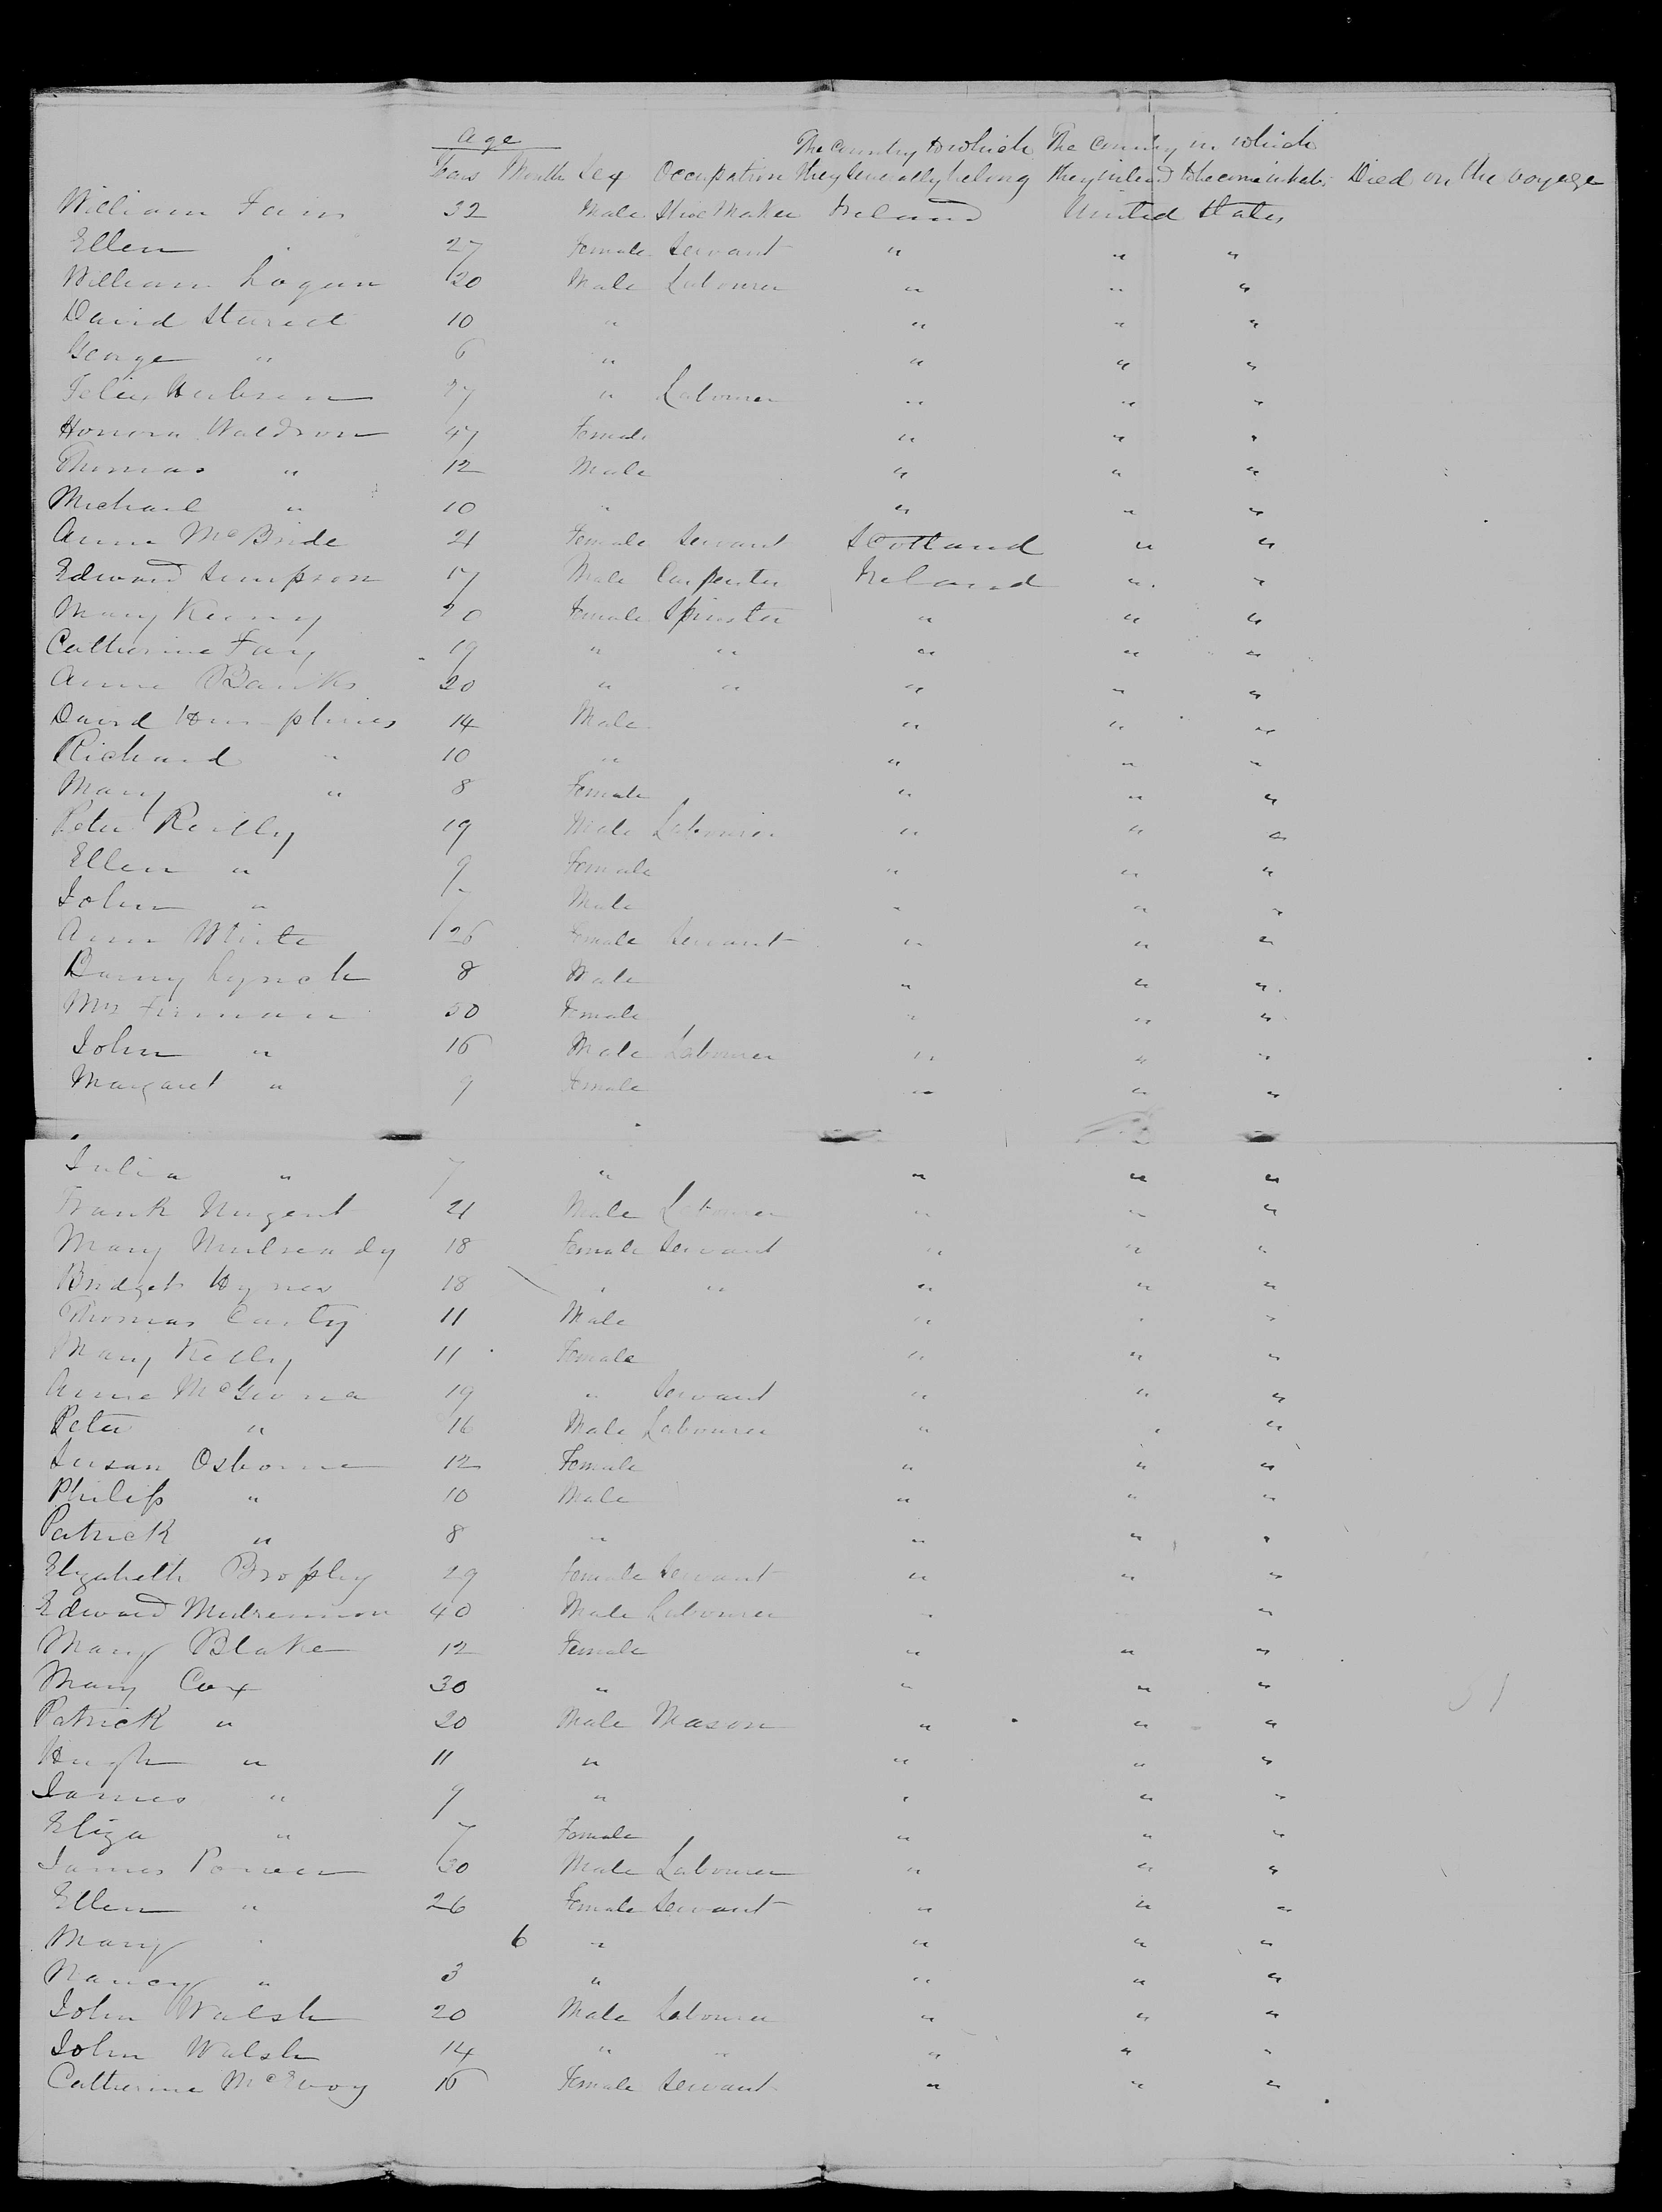 Age The Country to which The Country in which
Years Months Sex Occupation they severally belong they intend to become inhabts Died on the voyage
William 32 Male Shoe Maker Ireland United States
Ellen 27 Female Servant " " "
William Logan 20 Male Labourer " " "
David 10 " " " "
George " 6 " " " "
Felix 27 " Labourer " " "
Honora Waldron 47 Female " " "
Thomas " 12 Male " " "
Michael " 10 " " " "
Anne McBride 21 Female Servant Scotland " "
Edward Simpson 17 Male Carpenter Ireland " "
Mary 20 Female Spinster " " "
Catherine Fay 19 " " " " "
Anne Banks 20 " " " " "
David Humphries 14 Male " " "
Richard " 10 " " " "
Mary " 8 Female " " "
Peter Reilly 19 Male Labourer " " "
Ellen " 9 Female " " "
John " 7 Male " " "
Ann White 26 Female Servant " " "
Barny Lynch 8 Male " " "
Mrs 50 Female " " "
John " 16 Male Labourer " " "
Margaret " 9 Female " " "
Julia " 7 " " " "
Frank Nugent 21 Male Labourer " " "
Mary 18 Female Servant " " "
Bridget Hynes 18 " " " " "
Thomas Carty 11 Male " " "
Mary Kelly 11 Female " " "
Anne 19 " Servant " " "
Peter " 16 Male Labourer " " "
Susan Osborne 12 Female " " "
Philip " 10 Male " " "
Patrick " 8 " " " "
Elizabeth Brophy 29 Female Servant " " "
Edward Mulrennon 40 Male Labourer " " "
Mary Blake 12 Female " " "
Mary Cox 30 " " " "
Patrick " 20 Male Mason " " "
Hugh " 11 " " " "
James " 9 " " " "
Eliza " 7 Female " " "
James Power 30 Male Labourer " " "
Ellen " 26 Female Servant " " "
Mary " 6 " " " "
Nancy " 3 " " " "
John Walsh 20 Male Labourer " " "
John Walsh 14 " " " " "
Catherine McEvoy 16 Female Servant " " "